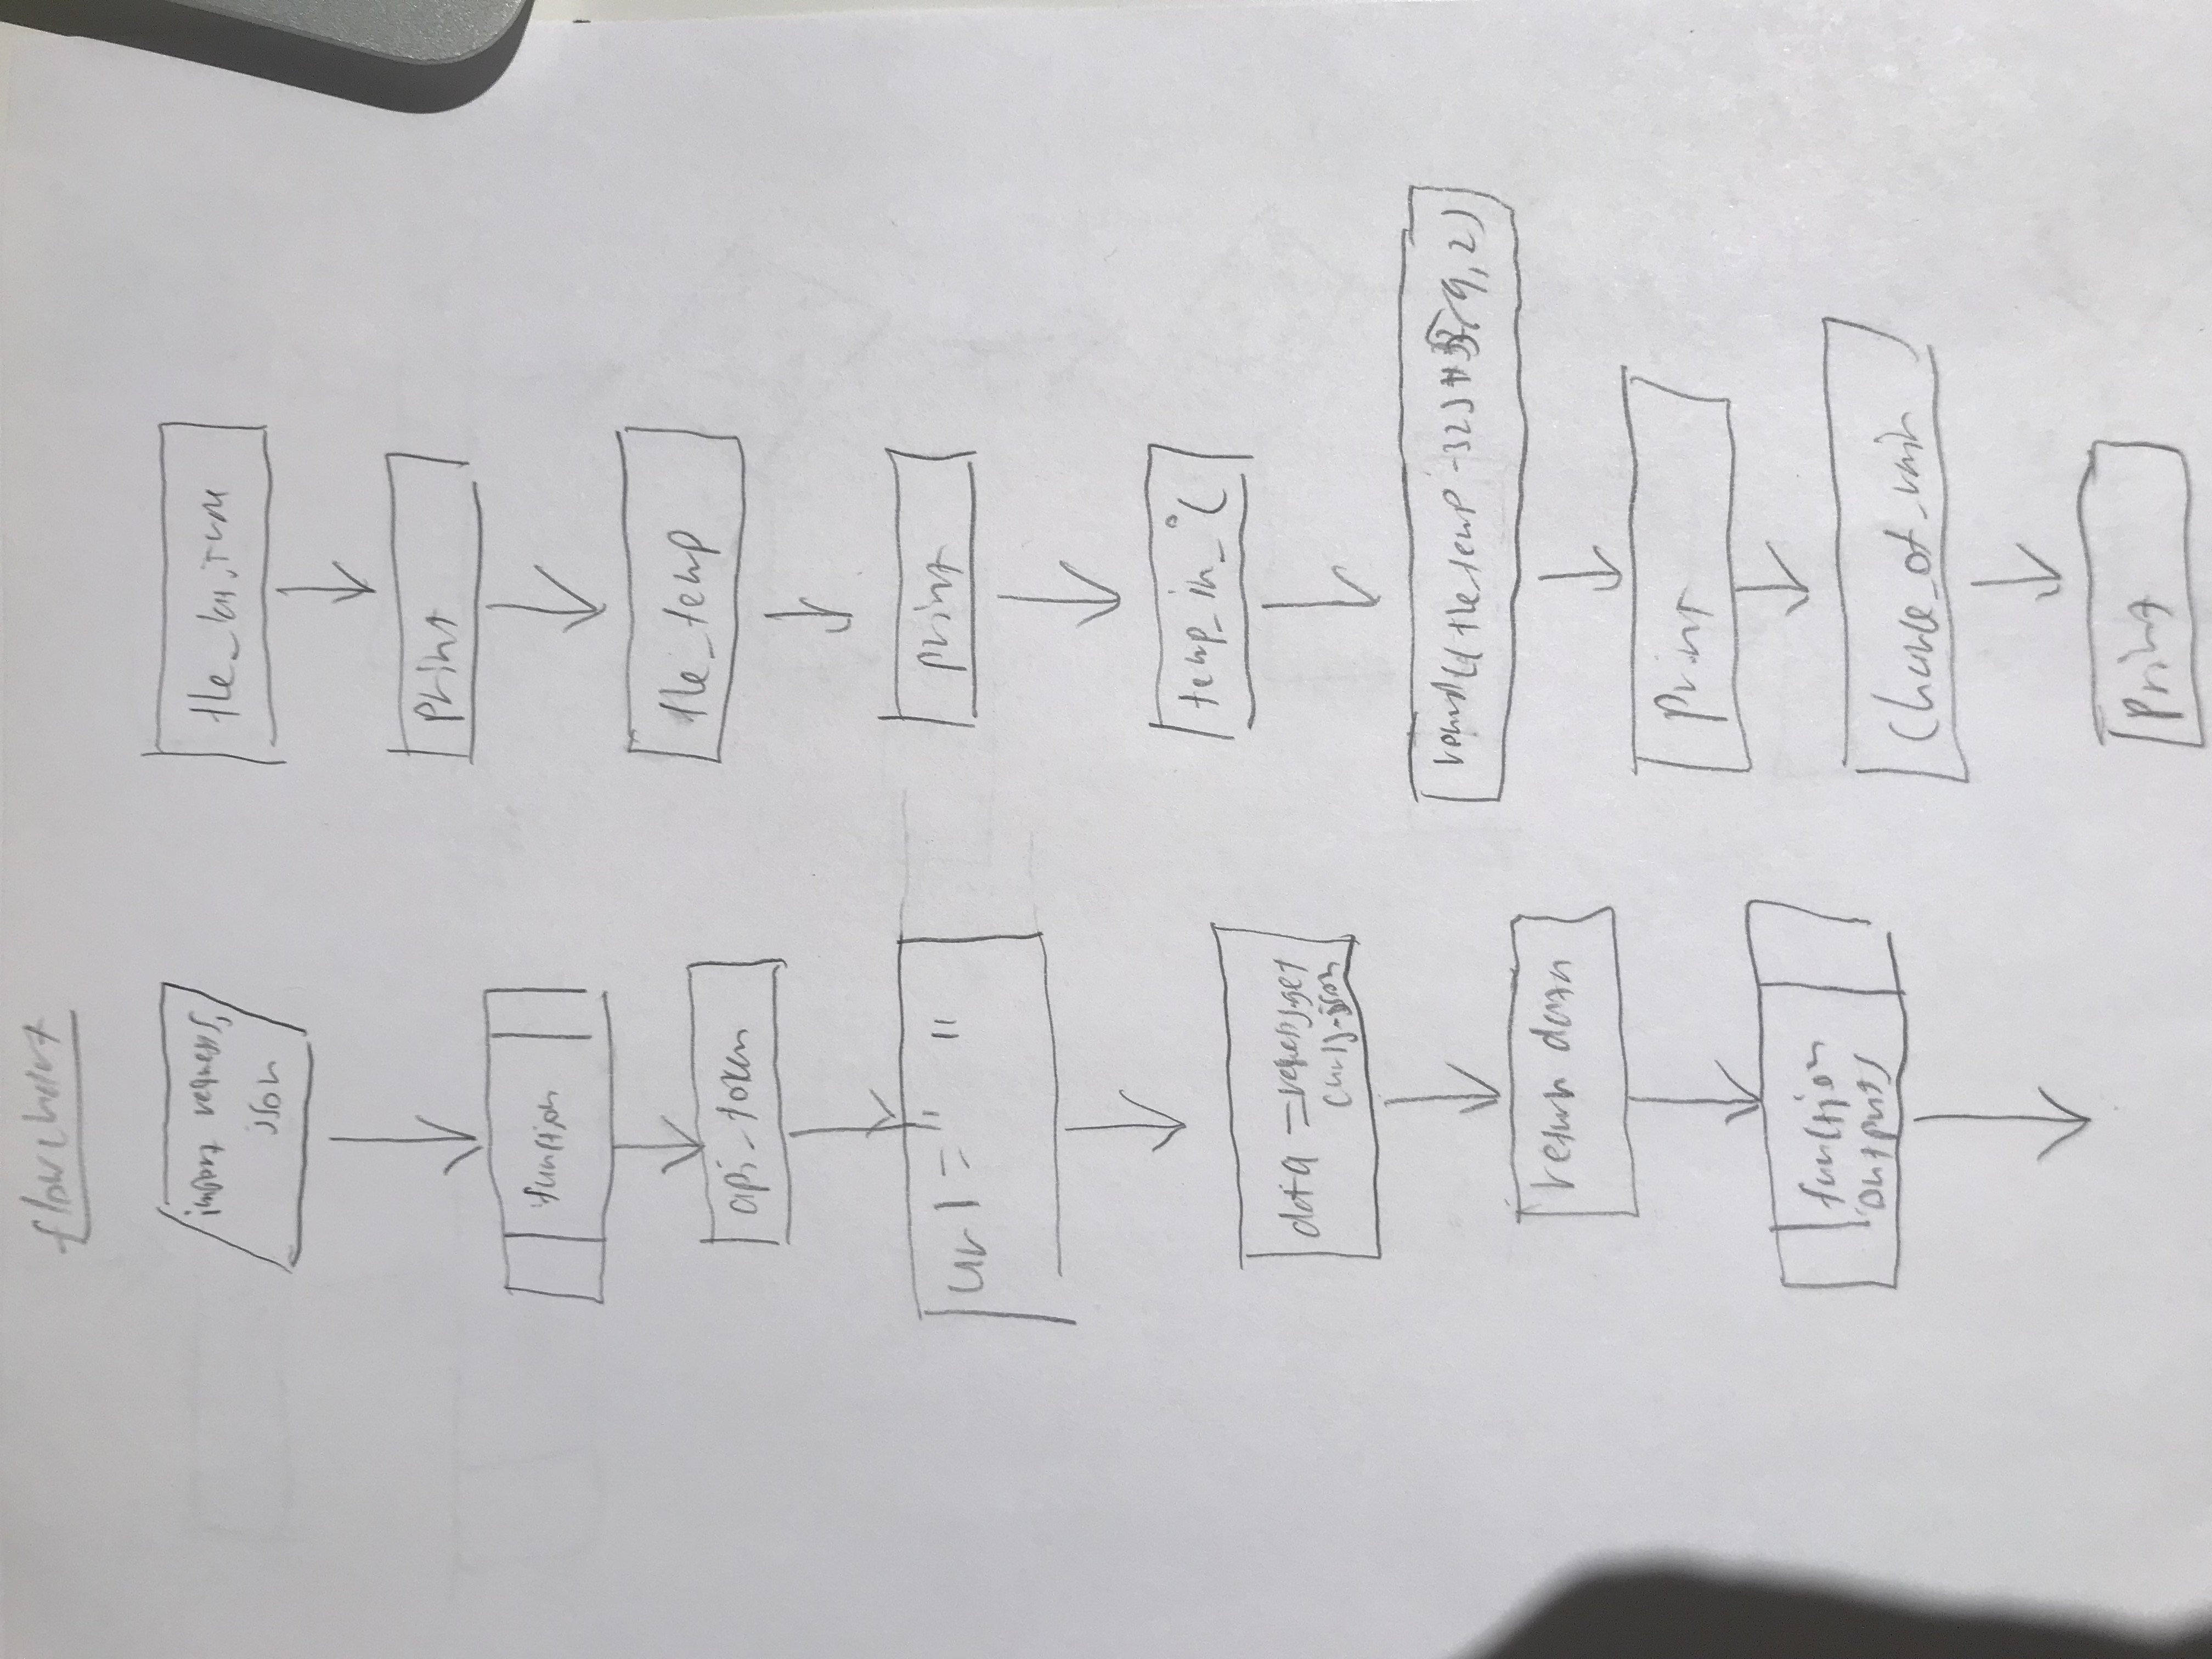 flowchart
import requests,
json
function
api_token
url = "    "
data = requests.get
(url).json
return data
function
outputs
print
the_temp
print
temp_in_°C
round((the_temp -32) * 9, 2)
print
chance_of_rain
print